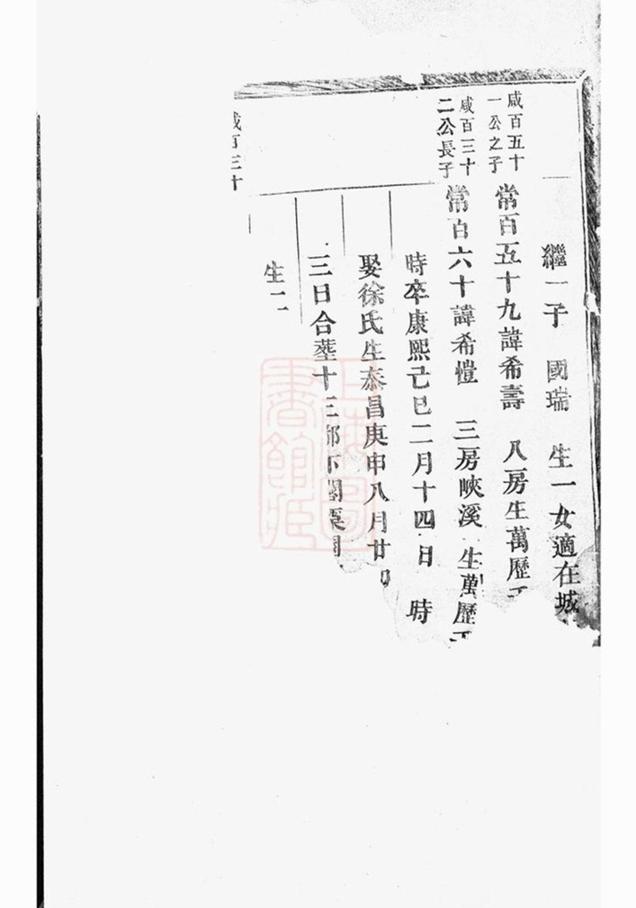 繼一子 國瑞 生一女適在城
咸百五十
一公之子
常百五十九諱希壽 八房生萬歷
咸百三十
二公長子
常百六十諱希愷 三房峽溪 生萬歷
時卒康熙己巳二月十四日 時
娶徐氏生泰昌庚申八月廿
三日合塟十三都下
生二
咸百三十
上海圖
書館藏